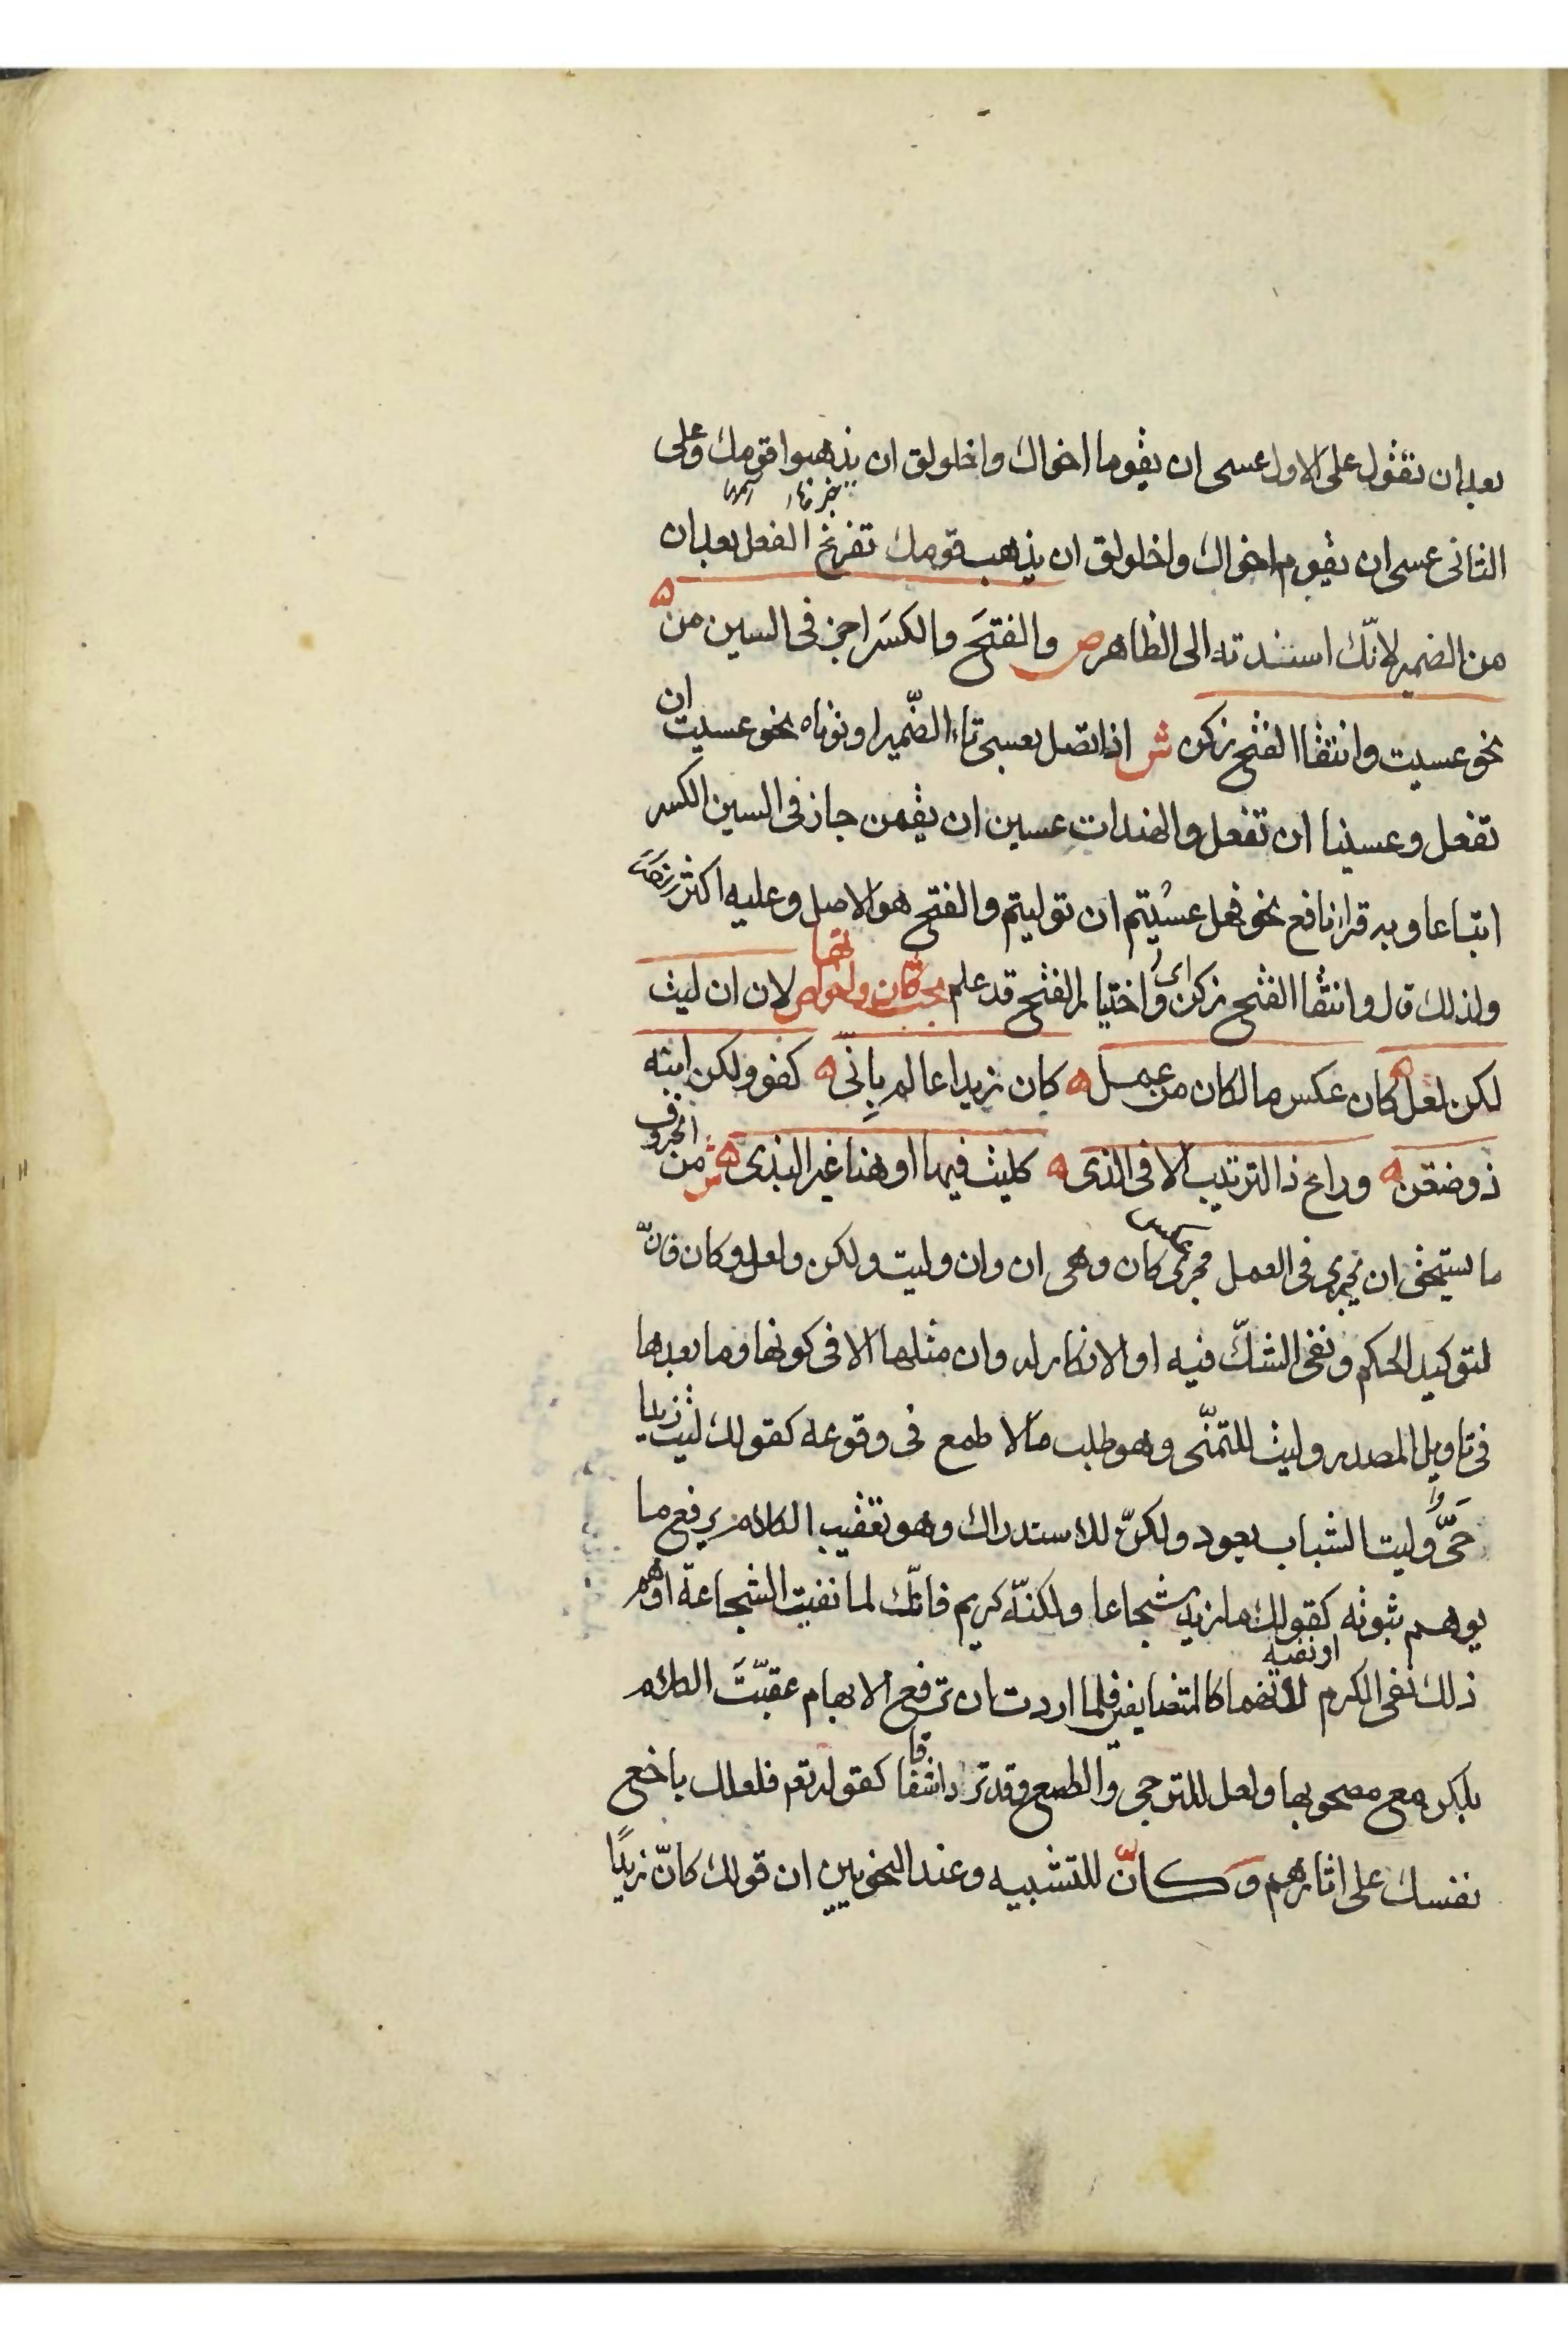 بعد ان تقول على الاول عسى ان يقوما اخواك واخلولق ان يذهبوا قومك وعلى
الثانى عسى ان يقوم اخواك واخلولق ان يذهب قومك تفرغ الفعل بعد ان
من الضمير لانّك اسندته الى الظاهر ص والفتحَ والكسَر اجز فى السين من
نحو عسيت وانتقا الفتح زكن ش اذا اتصل بعسى تاء الضّمير او نوناه نحو عسيت ان
تفعل وعسينا ان تفعل والهندات عسين ان يقمن جاز فى السين الكسر
اتباعا وبه قرا نافع نحو فهل عسيتم ان توليتم والفتح هو الاصل وعليه اكثر
ولذلك قال وانتقا الفتح زكن اى واختيار الفتح قد علم مبحث كان واخواتها ص لان ان ليت
لكن لعل كان عكس ما لكان من عمل كان زيدا عالم بانّى كفو ولكن ابنه
ذو ضغن وراع ذا الترتيب الا فى الذى كليت فيها او هنا غير البذى ش من الحروف
ما يستحق ان يجرى فى العمل مجرى كان وهى ان وان وليت ولكن ولعل وكان فانّ
لتوكيد الحكم ونفى الشكّ فيه او الانكار له وان مثلها الا فى كونها وما بعدها
فى تاويل المصدر وليت للتمنّى وهو طلب ما لا طمع فى وقوعه كقولك ليت زيدا
حىّ وليت الشباب يعود ولكنّ للاستدراك وهو تعقيب الكلام برفع ما
يوهم ثبوته او نفيه كقولك ما زيد شجاعا ولكنّه كريم فانّك لما نفيت الشجاعة اوهم
ذلك نفى الكرم لانهما كالمتضايفين فلما اردت ان ترفع الابهام عقبّتَ الكلام
بلكن مع مصحوبها ولعل للترجى والطمع وقد ترد اشفاقا كقوله تعم فلعلك باخع
نفسك على اثارهم وكانّ للتشبيه وعند النحويين ان قولك كانّ زيدًا